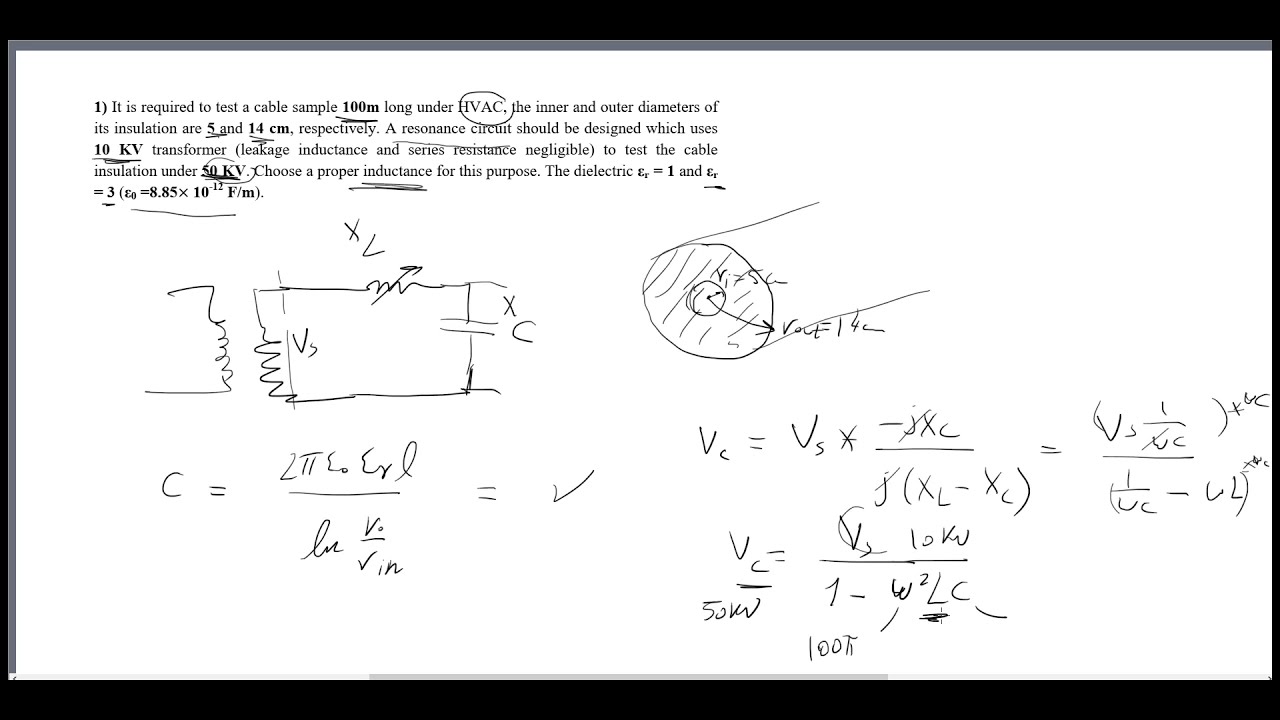 1) It is required to test a cable sample 100m long under HVAC, the inner and outer diameters of
its insulation are 5 and 14 cm, respectively. A resonance circuit should be designed which uses
10 KV transformer (leakage inductance and series resistance negligible) to test the cable
insulation under 50 KV. Choose a proper inductance for this purpose. The dielectric εr = 1 and εr
= 3 (ε0 =8.85× 10-12 F/m).
XL
Vs
X
C
ri=5cm
rout=14cm
C = 2πε0 εr l / ln ro/rin = ✓
Vc = Vs * -jXc / j(XL - Xc) = (Vs 1/ωC) *ωC / (1/ωC - ωL) *ωC
Vc = Vs 10KV / 1 - ω²LC
50KV
100π